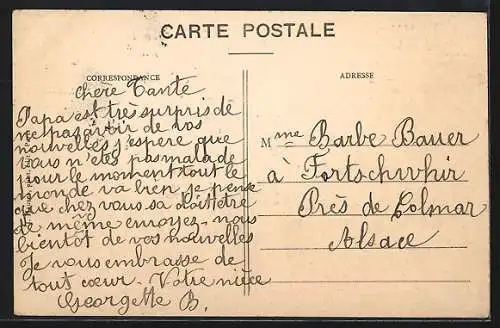 CARTE POSTALE
CORRESPONDANCE
chère Tante
Papa est très surpris de
ne pas avoir de vos
nouvelles j'espère que
vous n'êtes pas malade
pour le moment tout le
monde va bien je pense
que chez vous sa doit être
de même envoyez-nous
bientot de vos nouvelles
Je vous embrasse de
tout cœur. Votre nièce
Georgette B.
ADRESSE
Mme Barbe Bauer
à Fortschwhir
Près de Colmar
Alsace